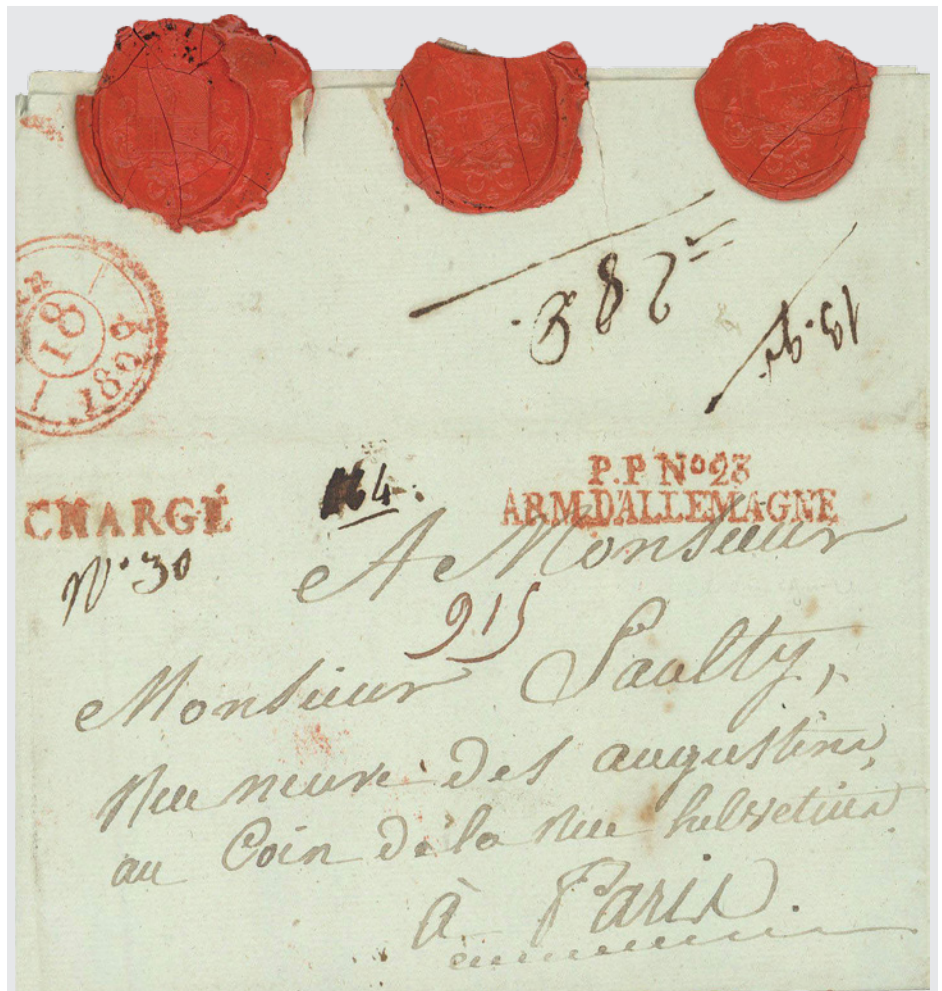 18
1808
382
CHARGÉ
N° 30
P.P N° 23
ARM.D'ALLEMAGNE
A Monsieur
915
Monsieur Saulty,
Rue neuve des augustins,
au Coin de la rue helvetius
à Paris.